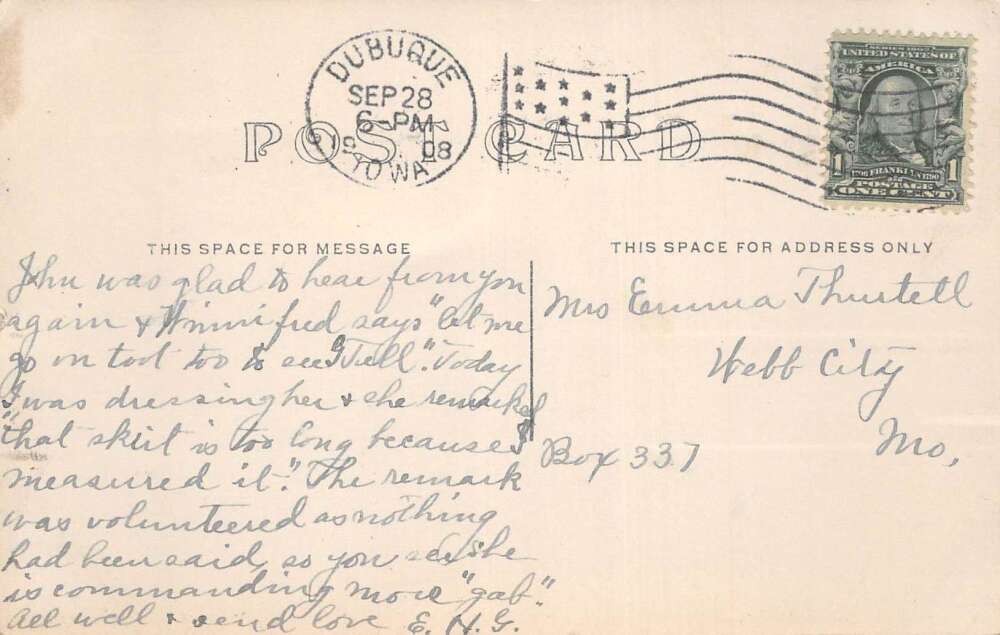 DUBUQUE
SEP 28
6-PM
1908
IOWA
SERIES 1902
UNITED STATES OF
AMERICA
1706 FRANKLIN 1790
1 POSTAGE 1
ONE CENT
POST CARD
THIS SPACE FOR MESSAGE
John was glad to hear from you
again & Winnifred says "let me
go on toot too to see Tell". Today
I was dressing her & she remarked
"that skirt is too long because I
measured it". The remark
was volunteered as nothing
had been said, so you see she
is commanding more "gab".
All well & send love E. H. G.
THIS SPACE FOR ADDRESS ONLY
Mrs Emma Thurtell
Webb City
Mo.
Box 337